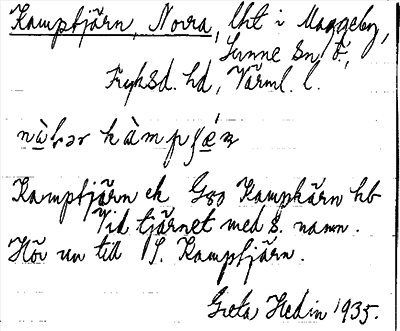 Kamptjärn, Norra, lht i Maggeby,
Sunne sn. ö.,
Fryksd. hd, Värml. l.
Kamptjärn ek G80 Kampkärn hb
Vid tjärnet med s. namn.
Hör un till S. Kamptjärn.
Greta Hedin 1935.